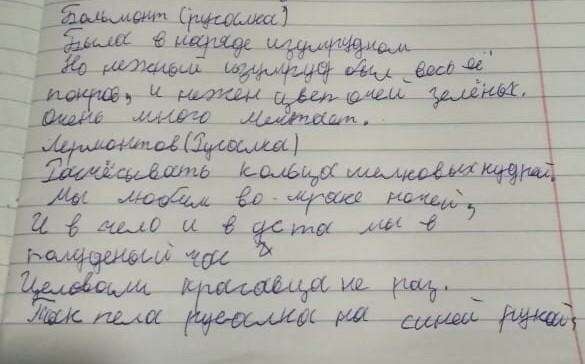 Бальмонт (русалка)
Была в наряде изумрудном
Но нежный изумруд был весь её
покров, и нежен цвет очей зелёных.
Очень много мечтает.
Лермонтов (Русалка)
Расчёсывать кольца шелковых кудрей
Мы любим во мраке ночей,
И в чело и в уста мы в
полуденый час
Целовали красавца не раз.
Так пела русалка на синей рекой,